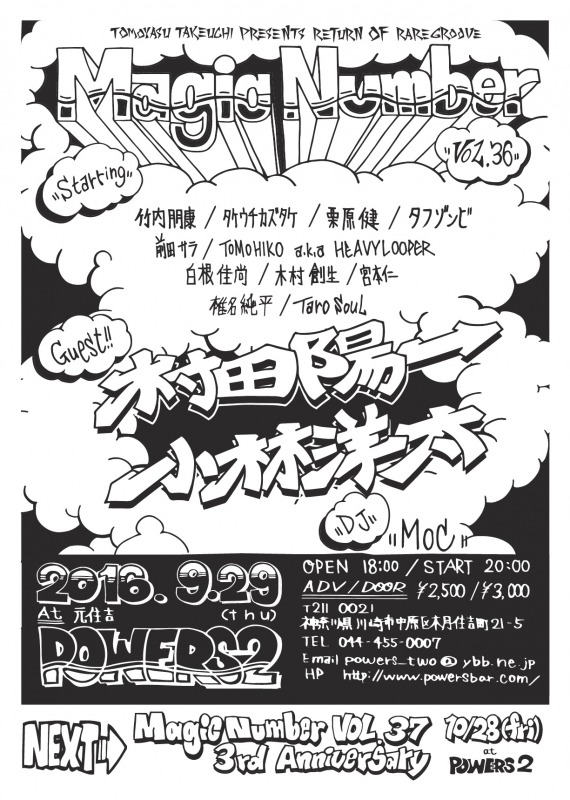 TOMOYASU TAKEUCHI PRESENTS RETURN OF RAREGROOVE
Magic Number
"VOL.36"
"Starring"
竹内朋康 / タケウチカズタケ / 栗原健 / タフゾンビ
前田サラ / TOMOHIKO a.k.a HEAVYLOOPER
白根佳尚 / 木村創生 / 宮本仁
椎名純平 / Taro Soul
Guest!!
村田陽一
小林洋太
"DJ" "MOC"
2016.9.29
At 元住吉 (thu)
POWERS2
OPEN 18:00 / START 20:00
ADV/DOOR ¥2,500/¥3,000
〒211 0021
神奈川県川崎市中原区木月住吉町21-5
TEL 044-455-0007
Email powers_two@ybb.ne.jp
HP http://www.powersbar.com/
NEXT!! Magic Number VOL.37 10/28(fri)
3rd Anniversary at POWERS2